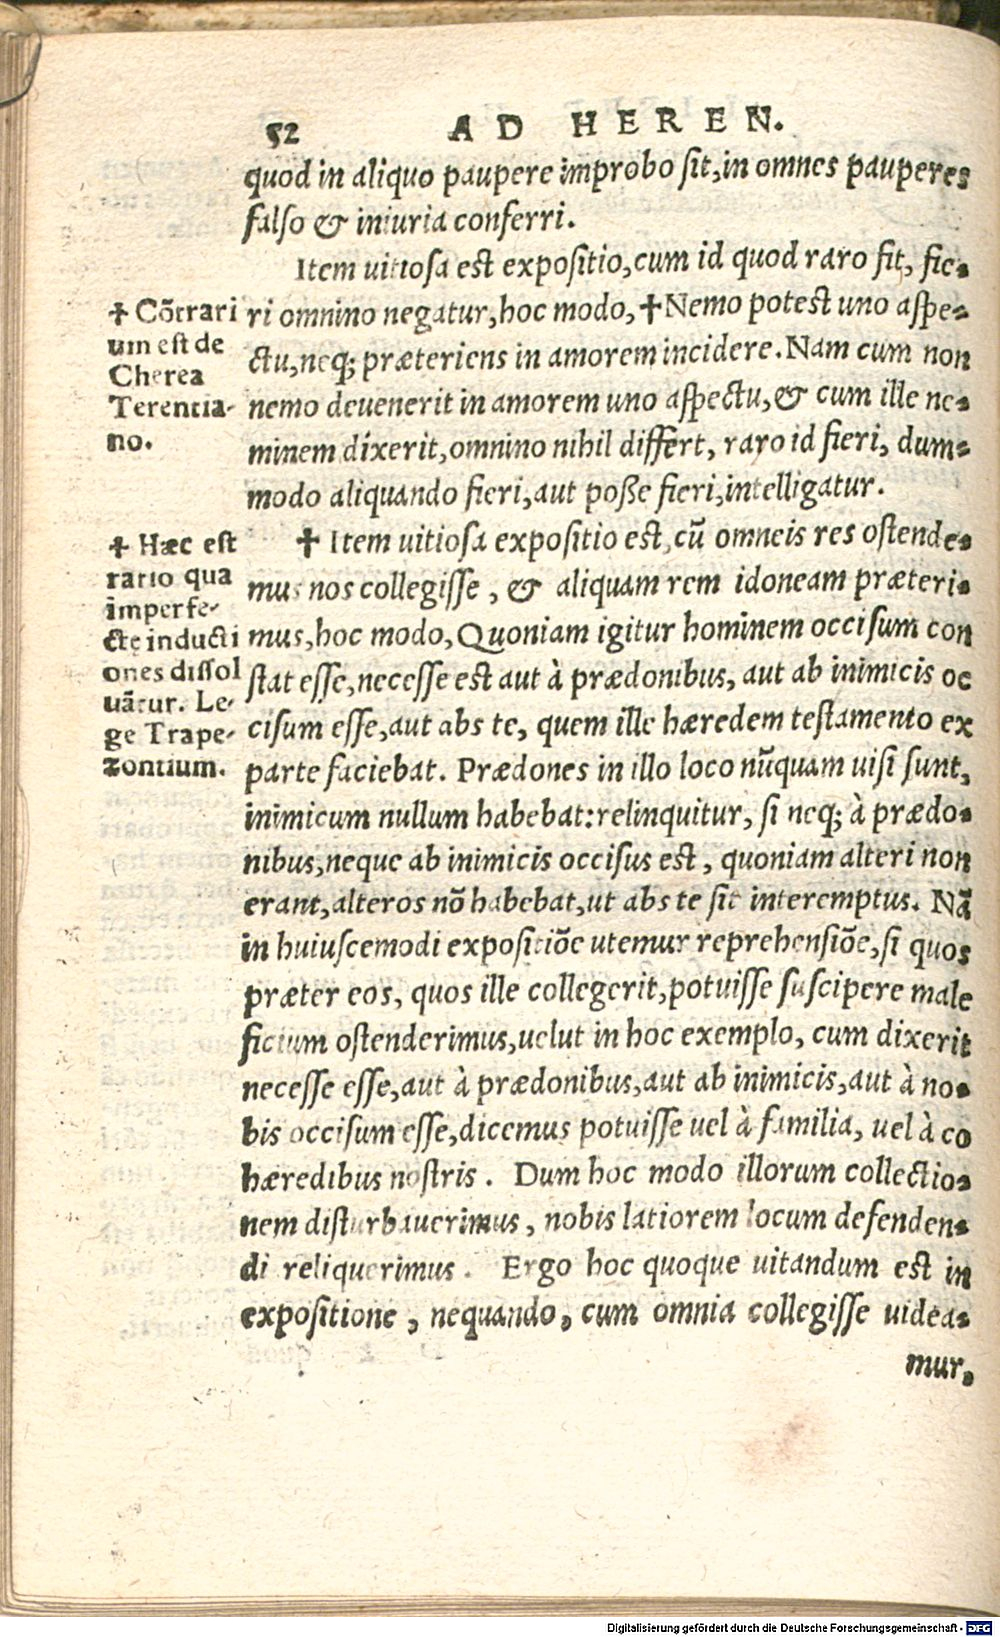 52 AD HEREN.
quod in aliquo paupere improbo sit, in omnes pauperes
falso & iniuria conferri.
Item uitiosa est expositio, cum id quod raro fit, fie-
ri omnino negatur, hoc modo, ✝Nemo potest uno aspe-
ctu, neq; præteriens in amorem incidere. Nam cum non
nemo deuenerit in amorem uno aspectu, & cum ille ne-
minem dixerit, omnino nihil differt, raro id fieri, dum-
modo aliquando fieri, aut posse fieri, intelligatur.
✝ Item uitiosa expositio est, cū omneis res ostende-
mus nos collegisse, & aliquam rem idoneam præteri-
mus, hoc modo, Quoniam igitur hominem occisum con
stat esse, necesse est aut à prædonibus, aut ab inimicis oc
cisum esse, aut abs te, quem ille hæredem testamento ex
parte faciebat. Prædones in illo loco nūquam uisi sunt,
inimicum nullum habebat: relinquitur, si neq; à prædo-
nibus, neque ab inimicis occisus est, quoniam alteri non
erant, alteros nō habebat, ut abs te sit interemptus. Nā
in huiuscemodi expositiōe utemur reprehensiōe, si quos
præter eos, quos ille collegerit, potuisse suscipere male
ficium ostenderimus, uelut in hoc exemplo, cum dixerit
necesse esse, aut à prædonibus, aut ab inimicis, aut à no-
bis occisum esse, dicemus potuisse uel à familia, uel à co
hæredibus nostris. Dum hoc modo illorum collectio-
nem disturbauerimus, nobis latiorem locum defenden-
di reliquerimus. Ergo hoc quoque uitandum est in
expositione, nequando, cum omnia collegisse uidea-
mur,
✝ Cōtrari
um est de
Cherea
Terentia-
no.
✝ Hæc est
ratio qua
imperfe-
ctę inducti
ones dissol
uātur. Le-
ge Trape-
zontium.
Digitalisierung gefördert durch die Deutsche Forschungsgemeinschaft - DFG